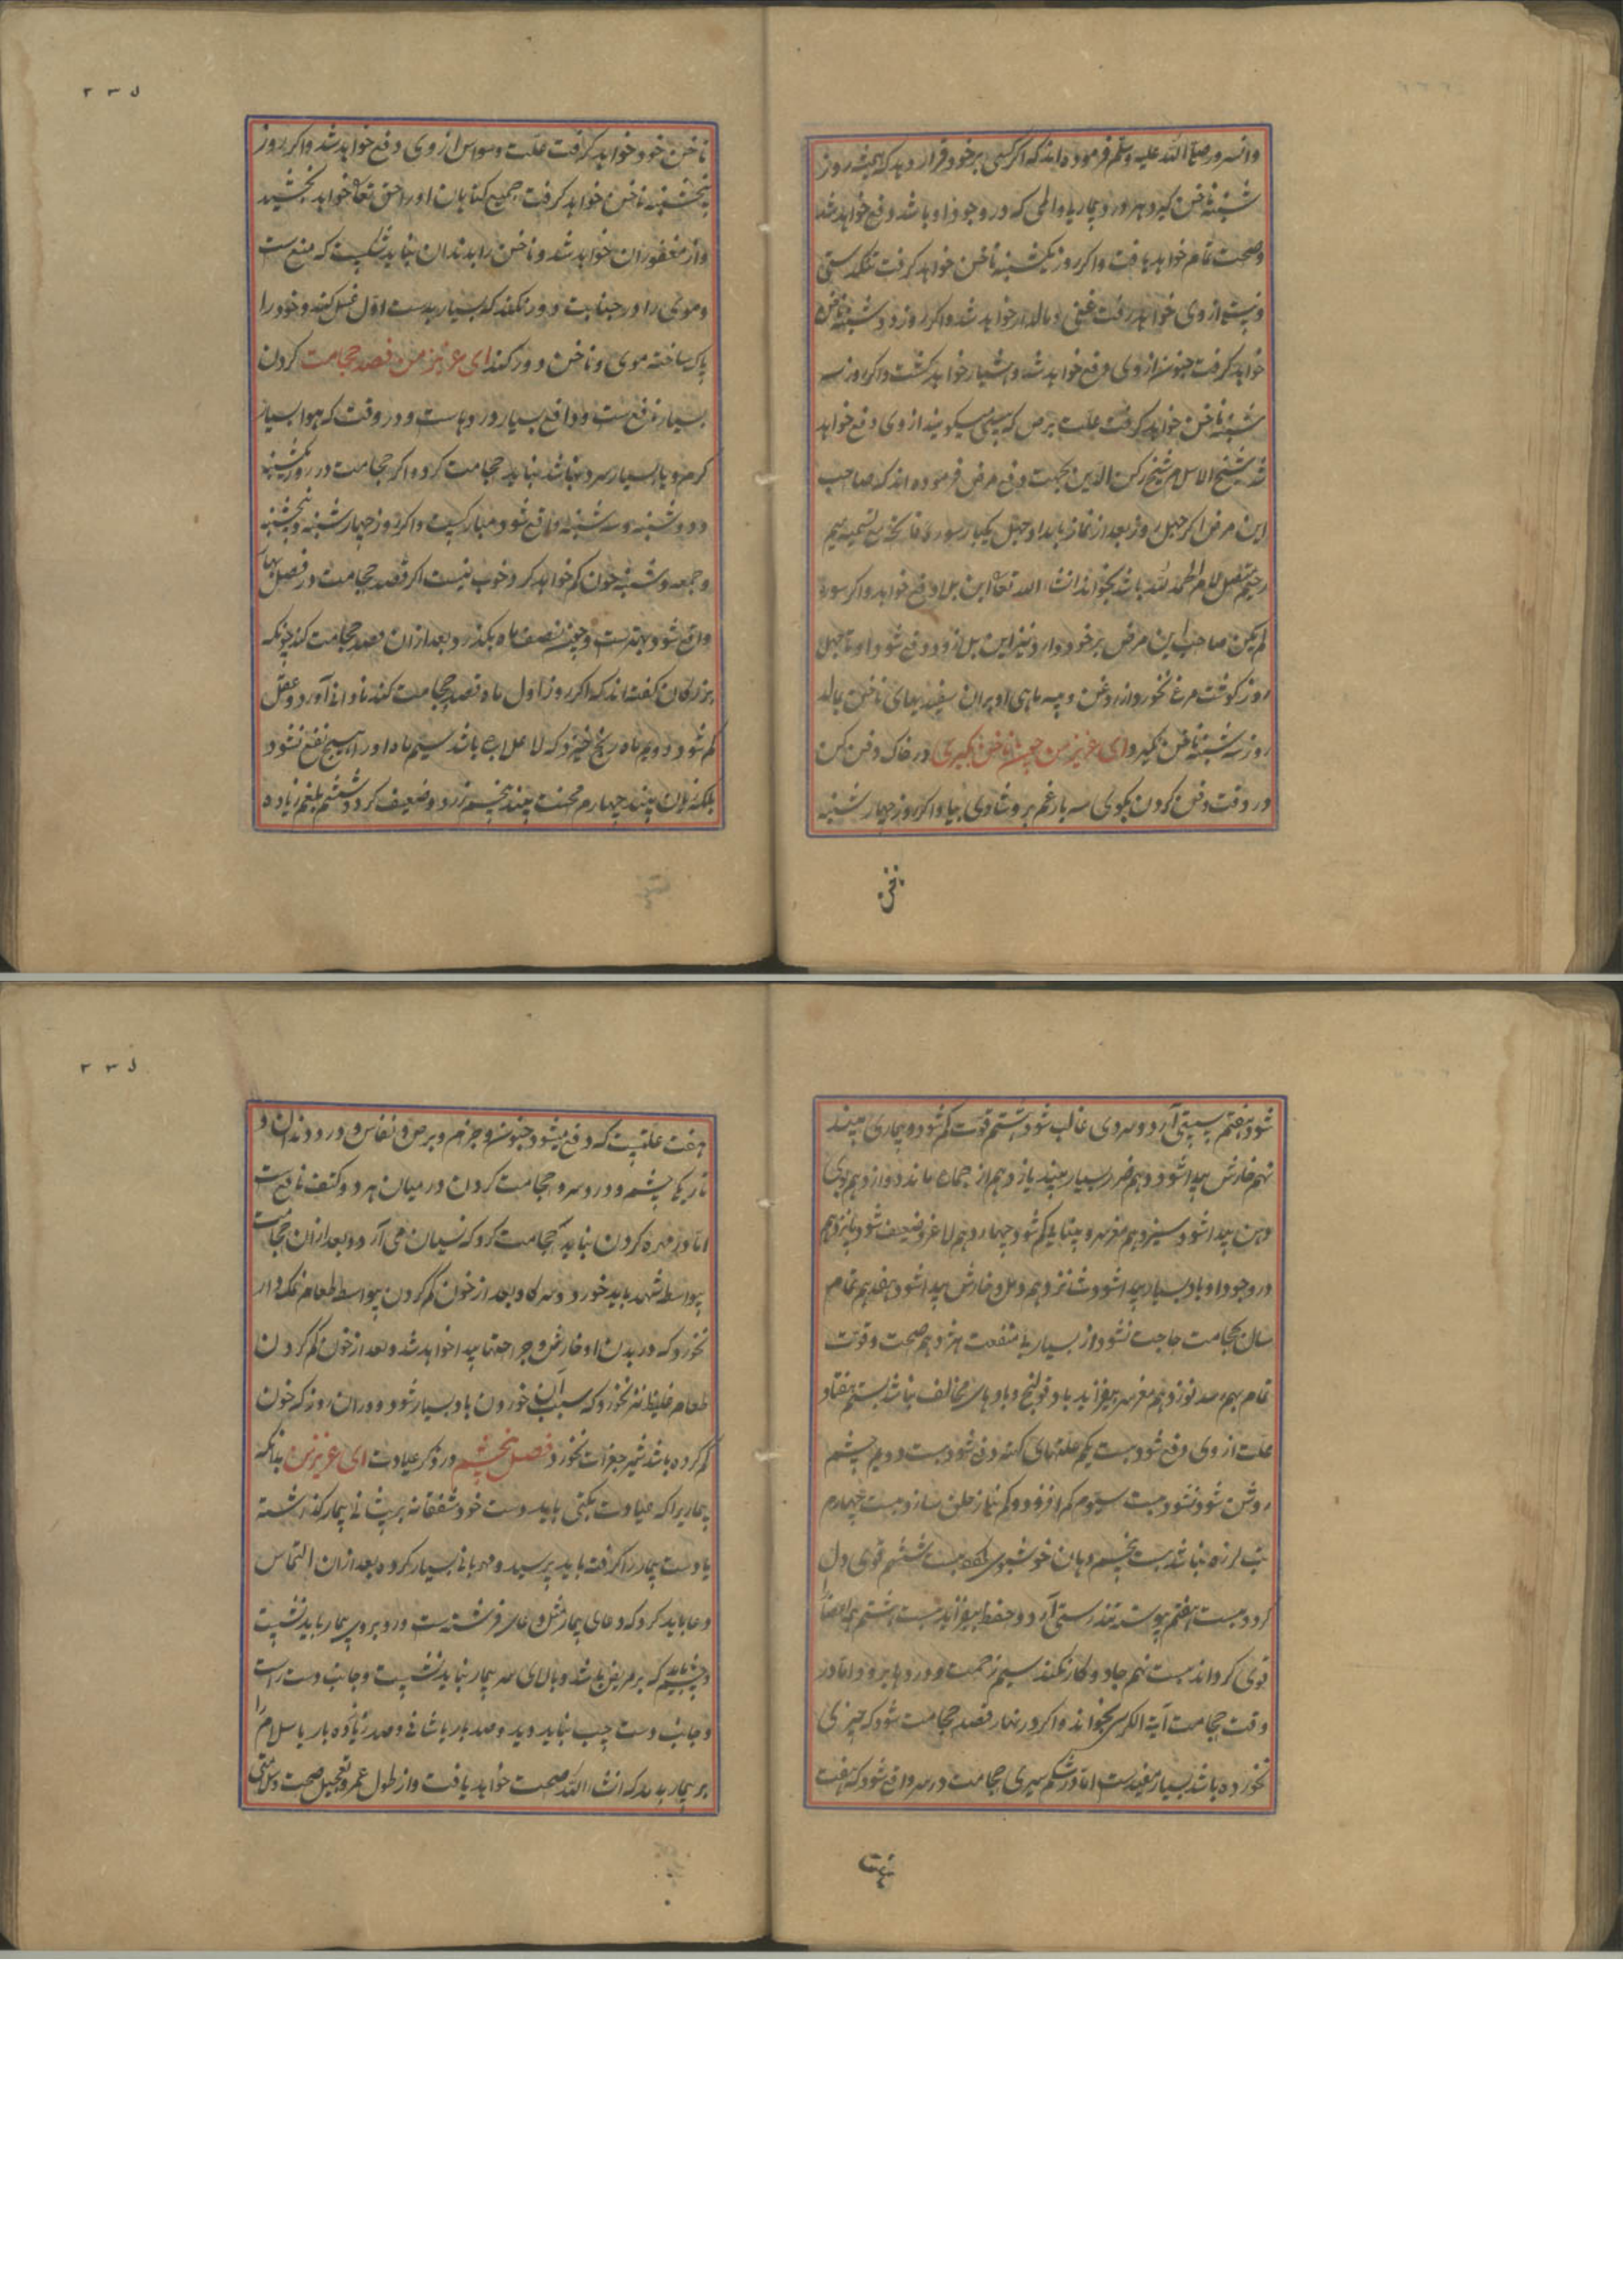 وانسرور صلی الله علیه وسلم فرموده‌اند که اگر کسی بر خود قرار دهد که همیشه روز
شنبه ناخن گیرد هر درد و بیماری و المی که در وجود او باشد دفع خواهد شد
وصحت تمام خواهد یافت واکر روز یکشنبه ناخن خواهد کرفت تنکدستی
از وی خواهد رفت غنی و مالدار خواهد شد واکر روز دوشنبه ناخن
خواهد کرفت جنون از وی دفع خواهد شد و هشیار خواهد کشت واکر روز سه
شنبه ناخن خواهد کرفت علت برص که پیسی میکویند از وی دفع خواهد
شد شیخ الاسلام شیخ رکن الدین بجهت دفع مرض فرموده اند که صاحب
این مرض اکر چهل روز بعد از نماز بامداد چهل یکبار سوره فاتحه مع تسمیه میم
رحیم متصل لام الحمد لله باشد بخواند انشاء الله تعالی این بلا دفع خواهد واکر سوره
لم یکن صاحب این مرض بر خود دارد نیز این بلا زود دفع شود او تا چهل
روز کوشت مرغ نخورد از روغن و پیه ماهی بر ان سفیدیهای ناخن بمالد
روز سه شنبه ناخن نکیرد ای عزیز من چون ناخن بکیری در خاک دفن کن
در وقت دفن کردن بکوی سه بار غم برو شادی بیا واکر روز چهار شنبه
ناخن
۲۳۵
ناخن خود خواهد کرفت علت وسواس از وی دفع خواهد شد واکر روز
پنجشنبه ناخن خواهد کرفت جمیع کناهان او را حق تعالی خواهد بخشید
واز مغفوران خواهد شد و ناخن را بدندان نباید شکست که منع ست
وموی را در جنابت دور نکند که بسیار بدست اول غسل کند وخود را
پاک ساخته موی و ناخن دور کند ای عزیز من فصد حجامت کردن
بسیار نافع ست ودافع بسیار دردهاست ودر وقت که هوا بسیار
کرم و یا بسیار سرد باشد نباید حجامت کرد واکر حجامت در روز یکشنبه
و دوشنبه وسه شنبه واقع شود مبارکست واکر روز چهار شنبه و پنجشنبه
وجمعه وشنبه خون کم خواهد کرد خوب نیست اکر قصد حجامت در فصل بهار
واقع شود بهترست وچون نصف ماه بکذرد بعد از ان قصد حجامت کند چونکه
بزرکان کفته اند که اکر روز اول ماه قصد حجامت کند نادانی آورد وعقل
کم شود دویم ماه رنج خیزد که لاعلاج باشد سیم ماه او را هیچ نفع نشود
بلکه زیان بیند چهارم محنت بیند پنجم زرد وضعیف کردد ششم بلغم زیاده
شود هفتم سستی آرد وسردی غالب شود هشتم قوت کم شود و بیماری بیند
نهم خارش پیدا شود دهم ضرر بسیار بیند یازدهم از جماع بماند دوازدهم بوی
دهن پیدا شود سیزدهم مغز سر و بینایی کم شود چهاردهم لاغر وضعیف شود پانزدهم
در وجود او باد بسیار پیدا شود شانزدهم دمل و خارش پیدا شود هفدهم تمام
سال بحجامت حاجت نشود از بسیاری منفعت هژدهم صحت وقوت
تمام بهم رسد نوزدهم مغز سر بیفزاید باد قولنج و بادهای مخالف نباشد بیستم هفتاد
علت از وی دفع شود بیست یکم علتهای کهنه دفع شود بیست دویم چشم
روشن شود بیست سیوم کم افزود
تب لرزه نباشد بیست پنجم دهان خوشبوی بیست ششم قوی دل
کردد بیست هفتم پیوسته تندرستی آرد وحفظ بیفزاید بیست هشتم همه اعضا را
قوی کرداند بیست نهم جادو کار نکند سیم زحمت و دردها برود اما در
وقت حجامت آیة الکرسی بخواند واکر در نهار قصد حجامت شود که چیزی
نخورده باشد بسیار مفیدست اما در شکم سیری حجامت در سر واقع شود که هفت
هفت
۲۳۵
هفت علتست که دفع میشود جنون و جزام و برص و نفاس و درد دندان و
تاریکی چشم و درد سر و حجامت کردن در میان هر دو کتف نافع ست
اما در مهره کردن نباید حجامت کرد که نسیان می آرد و بعد از ان حجامت
بواسطه شهد باید خورد وسرکه وبعد از خون کم کردن بواسطه طعام نمک دار
نخورد که در بدن او خارش و جراحتها پیدا خواهد شد وبعد از خون کم کردن
طعام غلیظ نیز نخورد که سبب آن خوردن باد بسیار شود ودر ان روز که خون
کم کرده باشد شیر جغرات نخورد فصل پنجم در ذکر عیادت ای عزیز من بدانکه
بیماریرا که عیادت بکنی باید دست خود شفقانه بر پیشانی بیمار کذاشته
یا دست بیمار را کرفته باید پرسید ومهربانی بسیار کرده بعد از ان التماس
دعا باید کرد که دعای بیمار مثل دعای فرشته ست و روبروی بیمار باید نشست
که بر مریض باشد وبالای سر بیمار نباید نشست وجانب دست راست
وجانب دست چپ نباید دید وصد بار یا شافی وصد زیاده بار یا سلام را
بر بیمار بدمد که انشاء الله صحت خواهد یافت واز طول عمر وتعجیل صحت وسلامتی